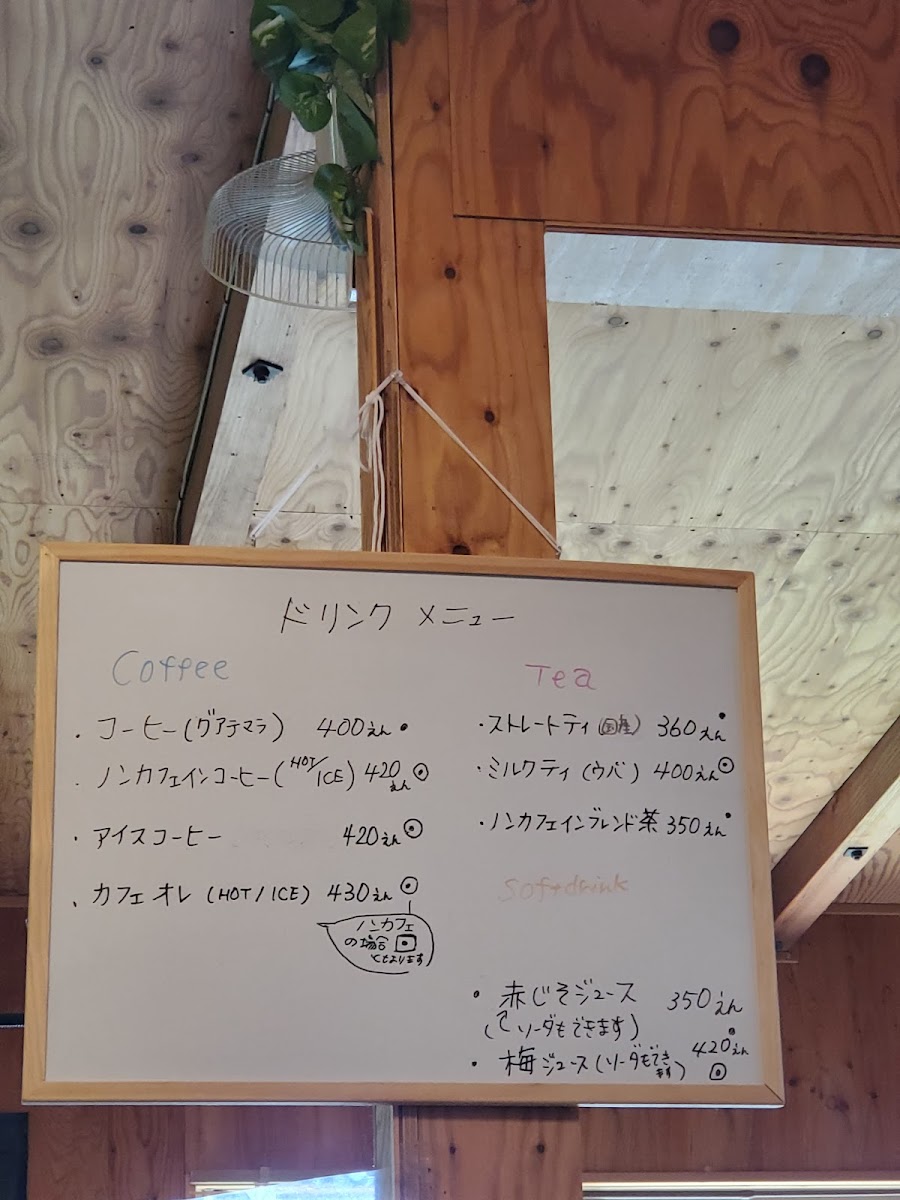 ドリンク メニュー
Coffee
・コーヒー(グアテマラ) 400えん
・ノンカフェインコーヒー(HOT/ICE) 420えん
・アイスコーヒー 420えん
・カフェオレ (HOT/ICE) 430えん
ノンカフェ
の場合
となります
Tea
・ストレートティ(国産) 360えん
・ミルクティ(ウバ) 400えん
・ノンカフェインブレンド茶 350えん
Softdrink
・赤じそジュース 350えん
(ソーダもできます)
・梅ジュース(ソーダもできます) 420えん